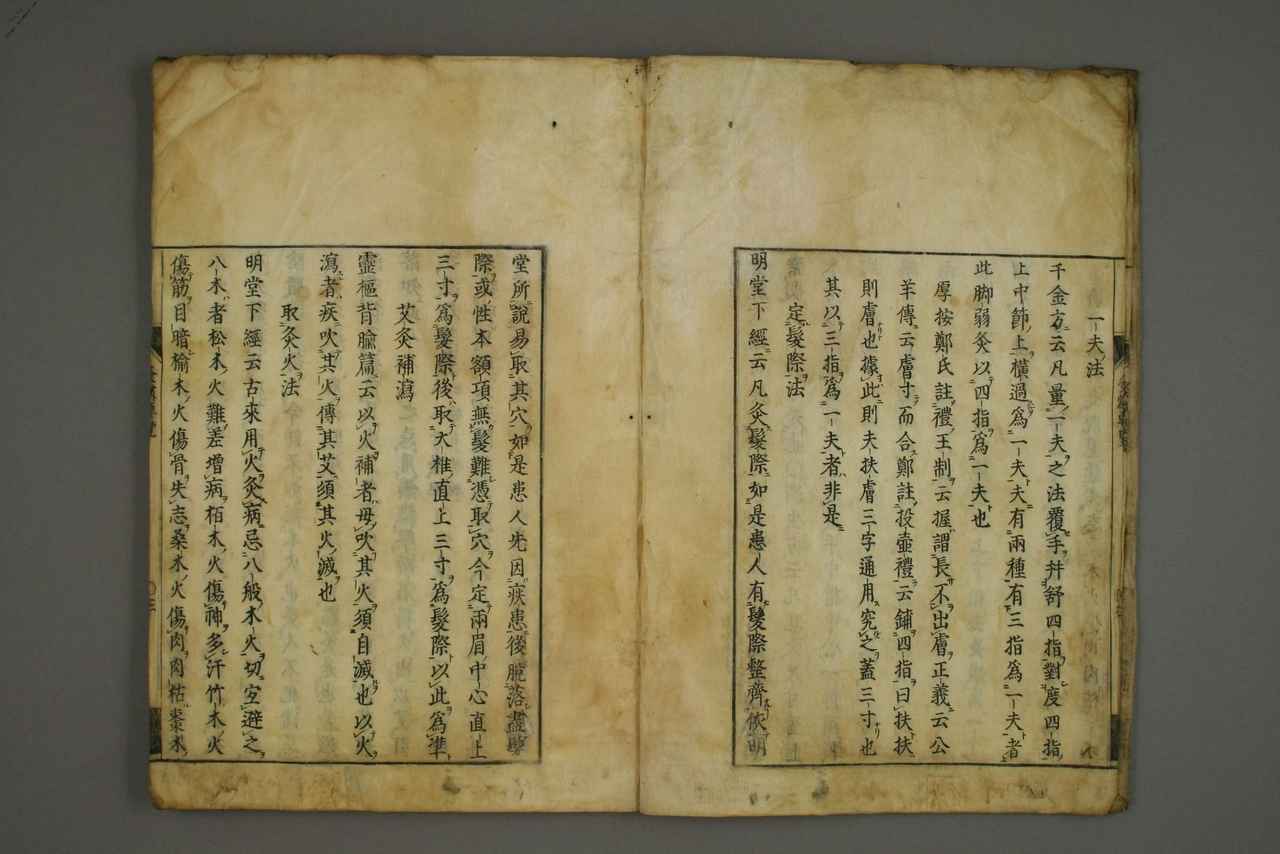 一夫法
千金方云凡量一夫之法覆手幷舒四指對度四指
上中節上橫過爲一夫夫有兩種有三指爲一夫者
此脚弱灸以四指爲一夫也
厚按鄭氏註禮王制云握謂長不出膚正義云公
羊傳云膚寸而合鄭註投壺禮云鋪四指曰扶扶
則膚也據此則夫扶膚三字通用究之蓋三寸也
其以三指爲一夫者非是
定髮際法
明堂下經云凡灸髮際如是患人有髮際整齊依明
堂所說易取其穴如是患人先因疾患後脫落盡髮
際或性本額項無髮難憑取穴今定兩眉中心直上
三寸爲髮際後取大椎直上三寸爲髮際以此爲準
艾灸補瀉
靈樞背腧篇云以火補者毋吹其火須自滅也以火
瀉者疾吹其火傳其艾須其火滅也
取灸火法
明堂下經云古來用火灸病忌八般木火切宜避之
八木者松木火難差增病栢木火傷神多汗竹木火
傷筋目暗楡木火傷骨失志桑木火傷肉肉枯棗木